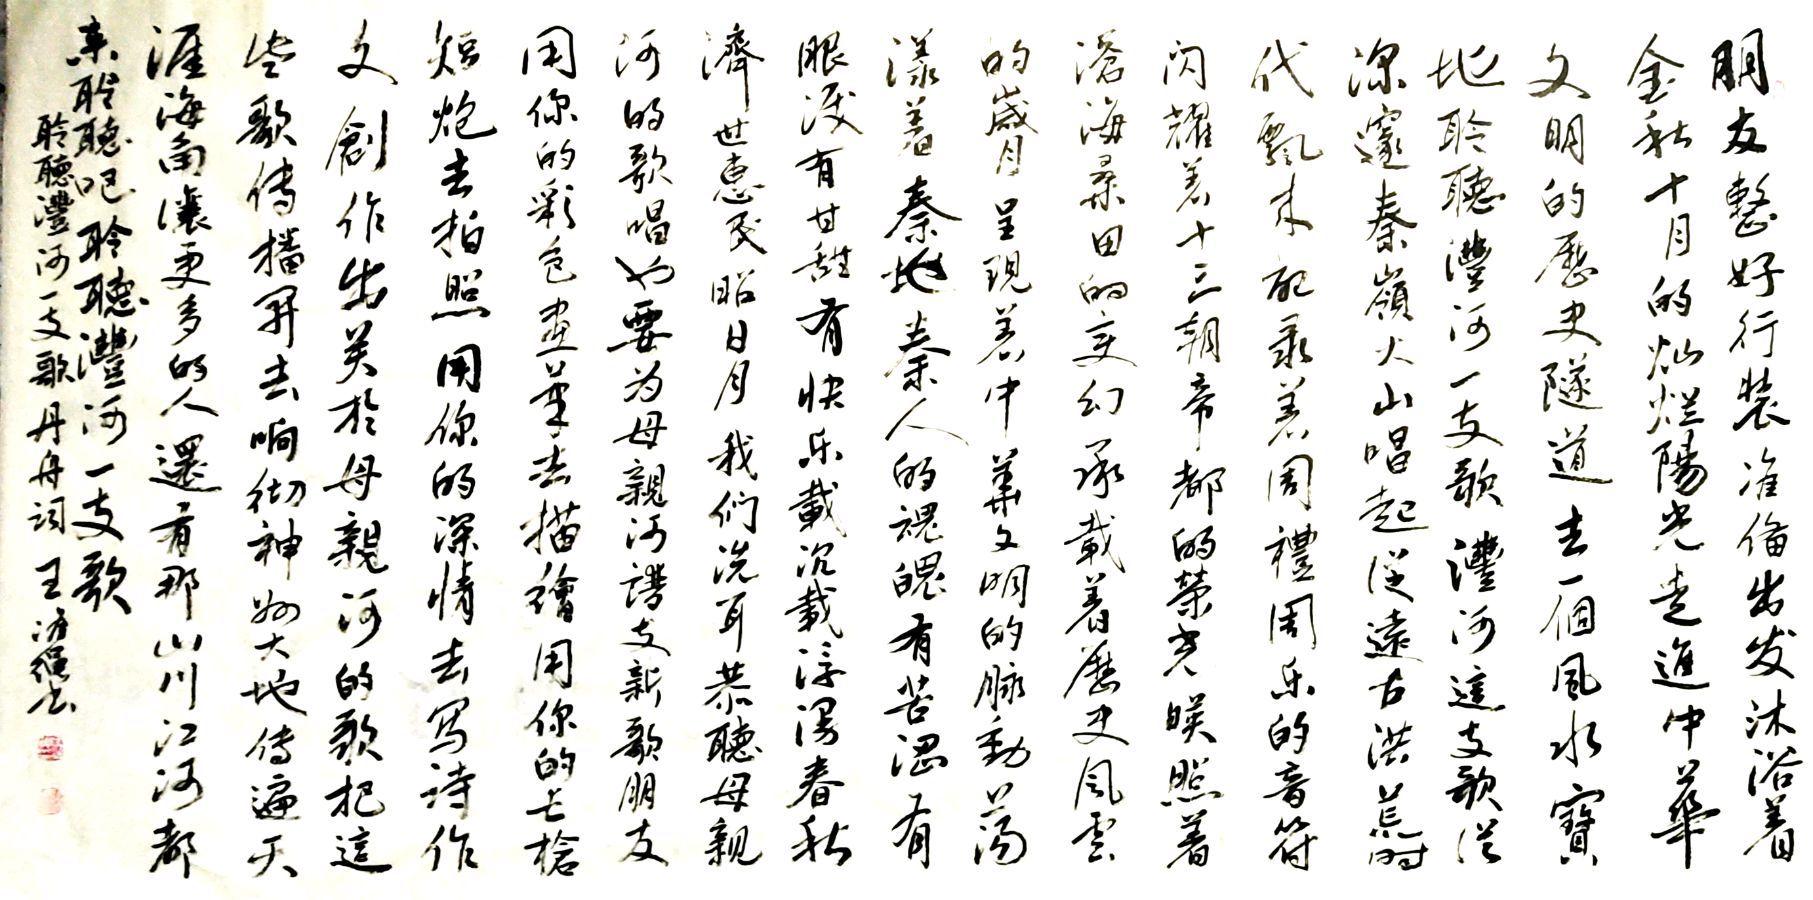 朋友整好行装准备出发沐浴着
金秋十月的灿烂陽光走進中華
文明的歷史隧道去一個風水寶
地聆聽灃河一支歌灃河這支歌從
深邃秦嶺火山唱起從遠古洪荒時
代飄来記录着周禮周乐的音符
闪耀着十三朝帝都的荣光暎照着
滄海桑田的变幻承載着歷史风雲
的歲月呈現着中華文明的脉動荡
漾着秦地秦人的魂魄有苦澀有
眼淚有甘甜有快乐載沉載浮漫春秋
濟世惠民昭日月我们洗耳恭聽母親
河的歌唱也要为母親河譜支新歌朋友
用你的彩色畫笔去描繪用你的长槍
短炮去拍照用你的深情去写詩作
文創作出关於母親河的歌把這
些歌传播开去响彻神州大地传遍天
涯海角讓更多的人還有那山川江河都
来聆聽吧聆聽灃河一支歌
聆聽灃河一支歌丹舟詞王 書